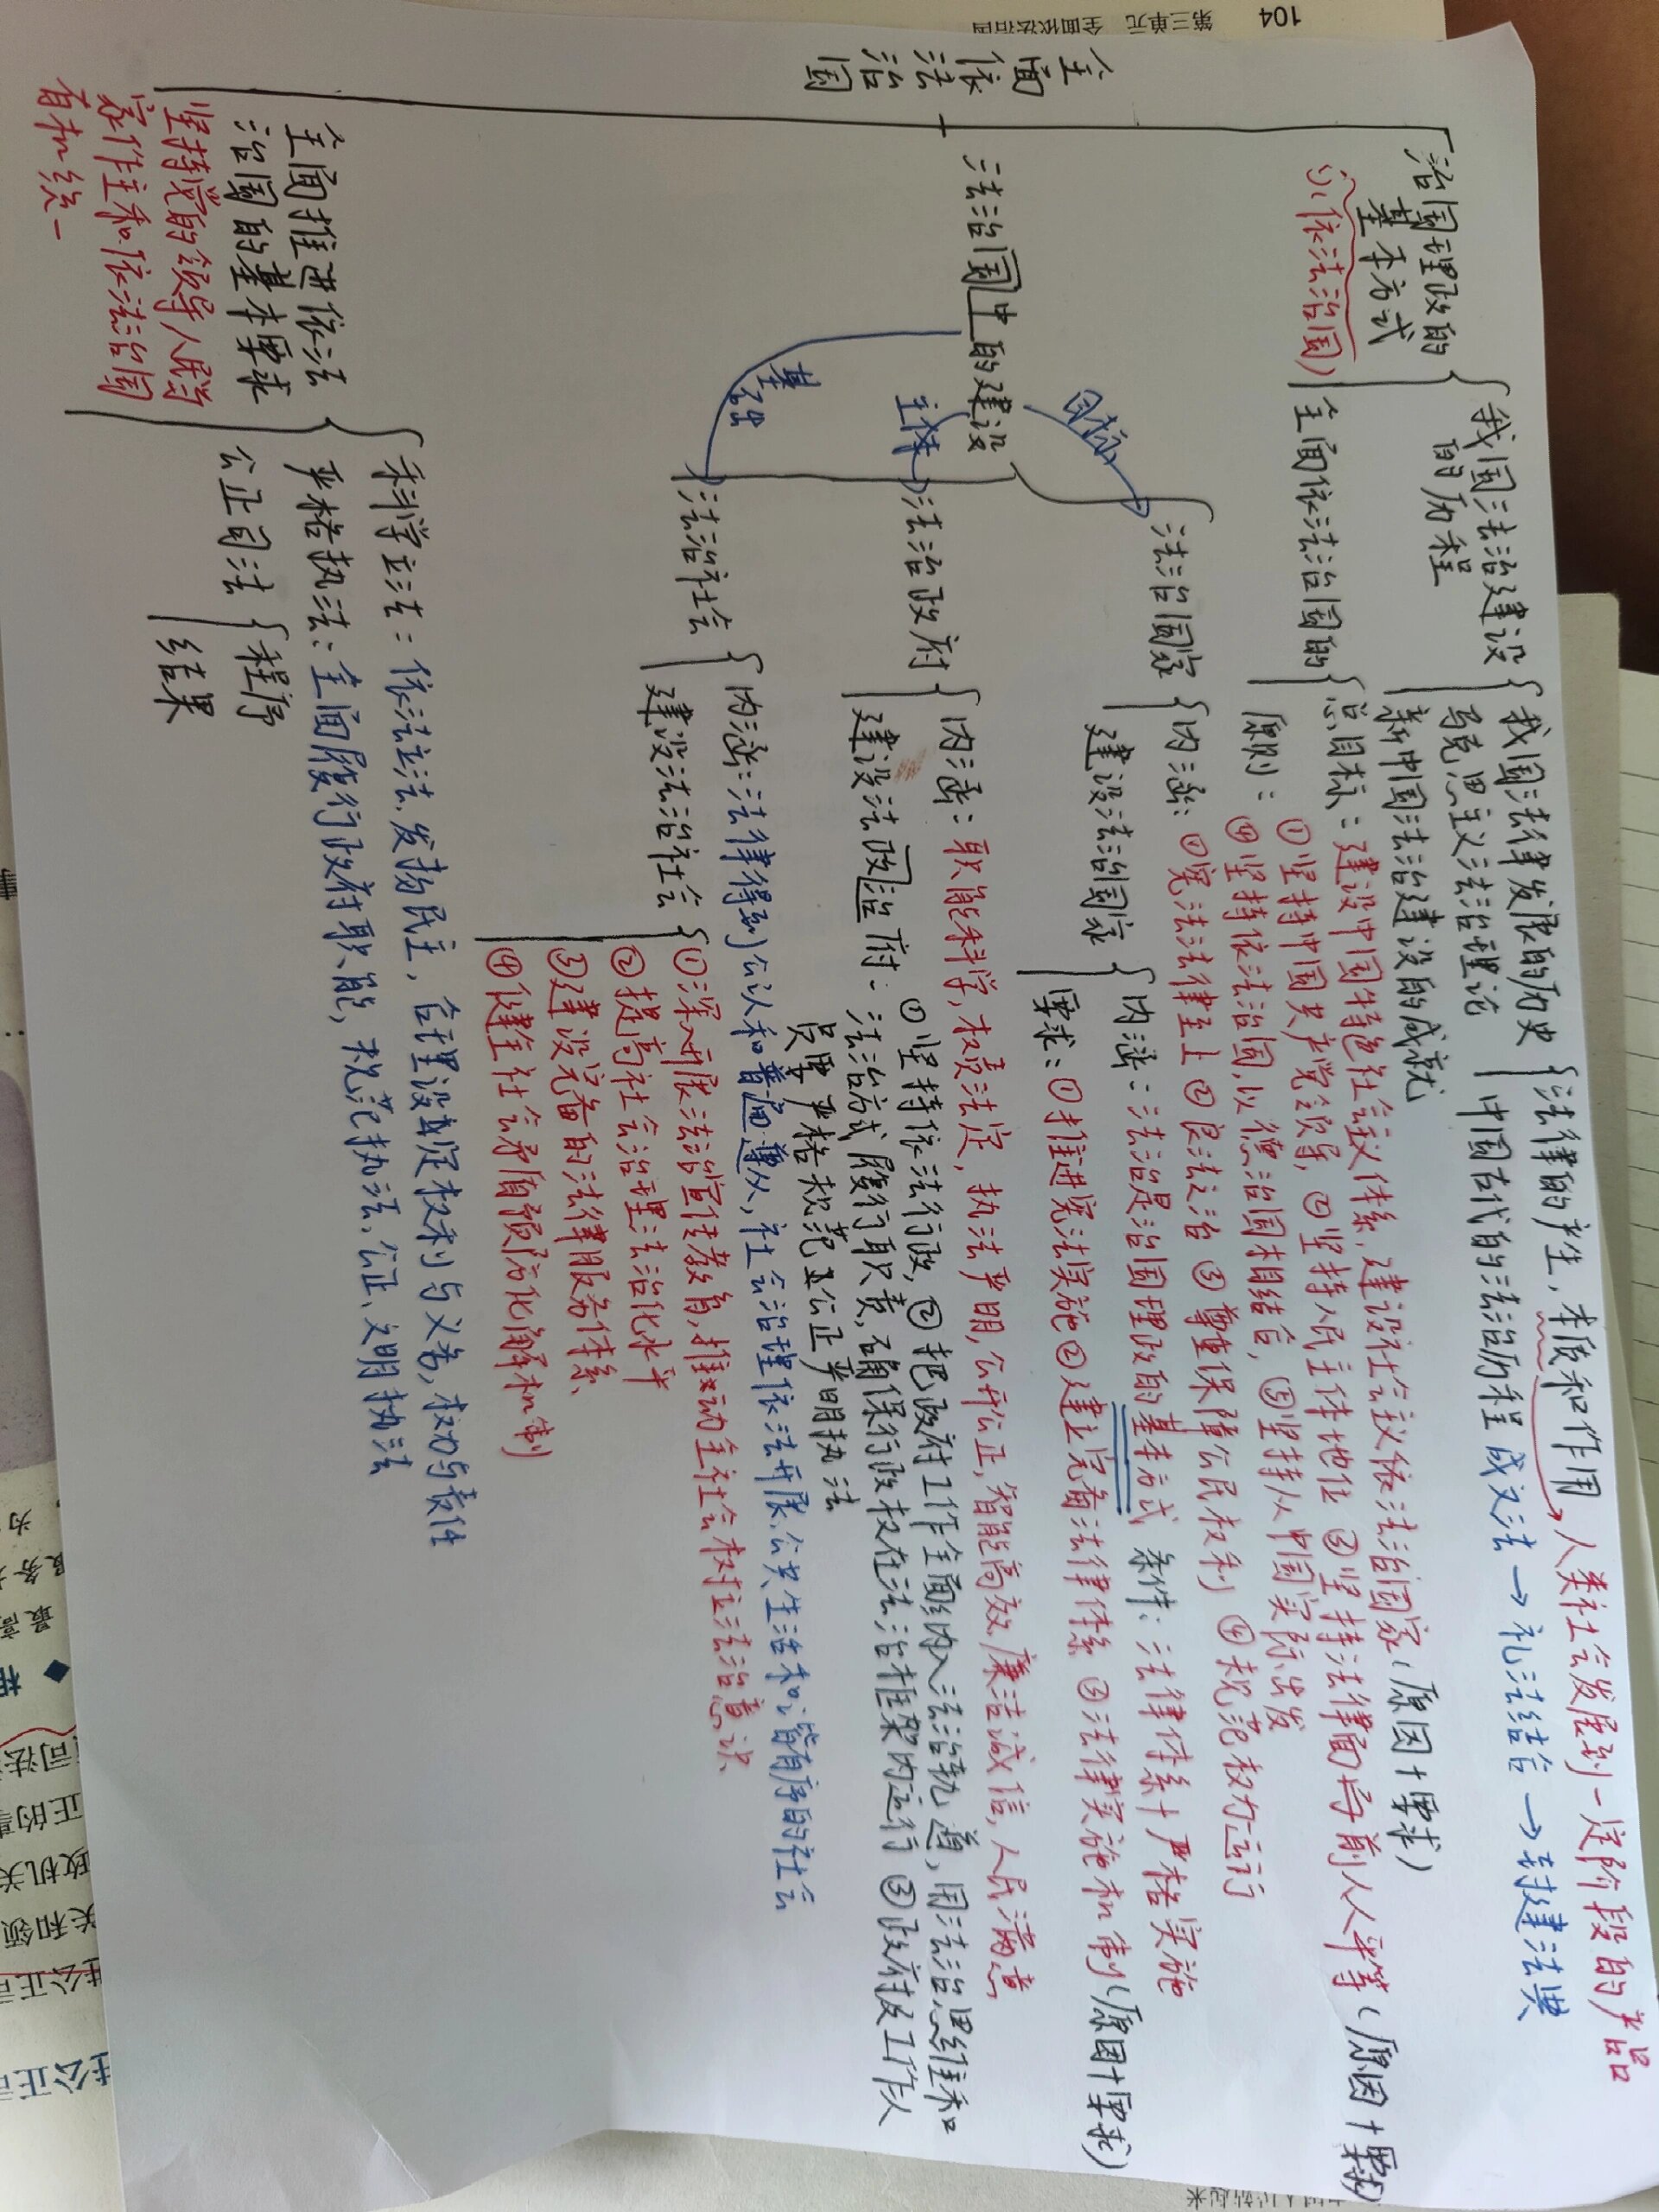 104 第三单元 全面依法治国
全面依法治国
治国理政的
基本方式
(依法治国)
我国法治建设
的历程
我国法律发展的历史
法律的产生,本质和作用
人类社会发展到一定阶段的产品
中国古代的法治历程 成文法→礼法结合→封建法典
马克思主义法治理论
新中国法治建设的成就
全面依法治国的
总目标:建设中国特色社会主义体系,建设社会主义依法治国家(原因+要求)
原则:
①坚持中国共产党领导,②坚持人民主体地位 ③坚持法律面前人人平等(原因+要求)
④坚持依法治国,以德治国相结合,⑤坚持从中国实际出发
法治国中的建设
目标
主体
基础
法治国家
内涵:①宪法法律至上 ②良法之治 ③尊重保障公民权利 ④规范权力运行
建设法治国家
内涵:法治是治国理政的基本方式 条件:法律体系+严格实施
要求:①推进宪法实施 ②建立完备法律体系 ③法律实施机制(原因+要求)
法治政府
内涵:职能科学,权责法定,执法严明,公开公正,智能高效,廉洁诚信,人民满意
建设法政治府:①坚持依法行政,②把政府工作全面纳入法治轨道,用法治思维和
法治方式履行职责,确保行政权在法治框架内运行 ③政府及工作人
员要严格规范公正严明执法
法治社会
内涵:法律得到公认和普遍遵从,社会治理依法开展,公共生活和谐有序的社会
建设法治社会
①深入开展法治宣传教育,推动全社会树立法治意识
②提高社会治理法治化水平
③建设完备的法律服务体系、
④健全社会矛盾预防化解机制
全面推进依法
治国的基本要求
坚持党的领导人民当
家作主和依法治国
有机统一
科学立法:依法立法,发扬民主,合理设定权利与义务,权力与责任
严格执法:全面履行政府职能,规范执法、公正、文明执法
公正司法
程序
结果